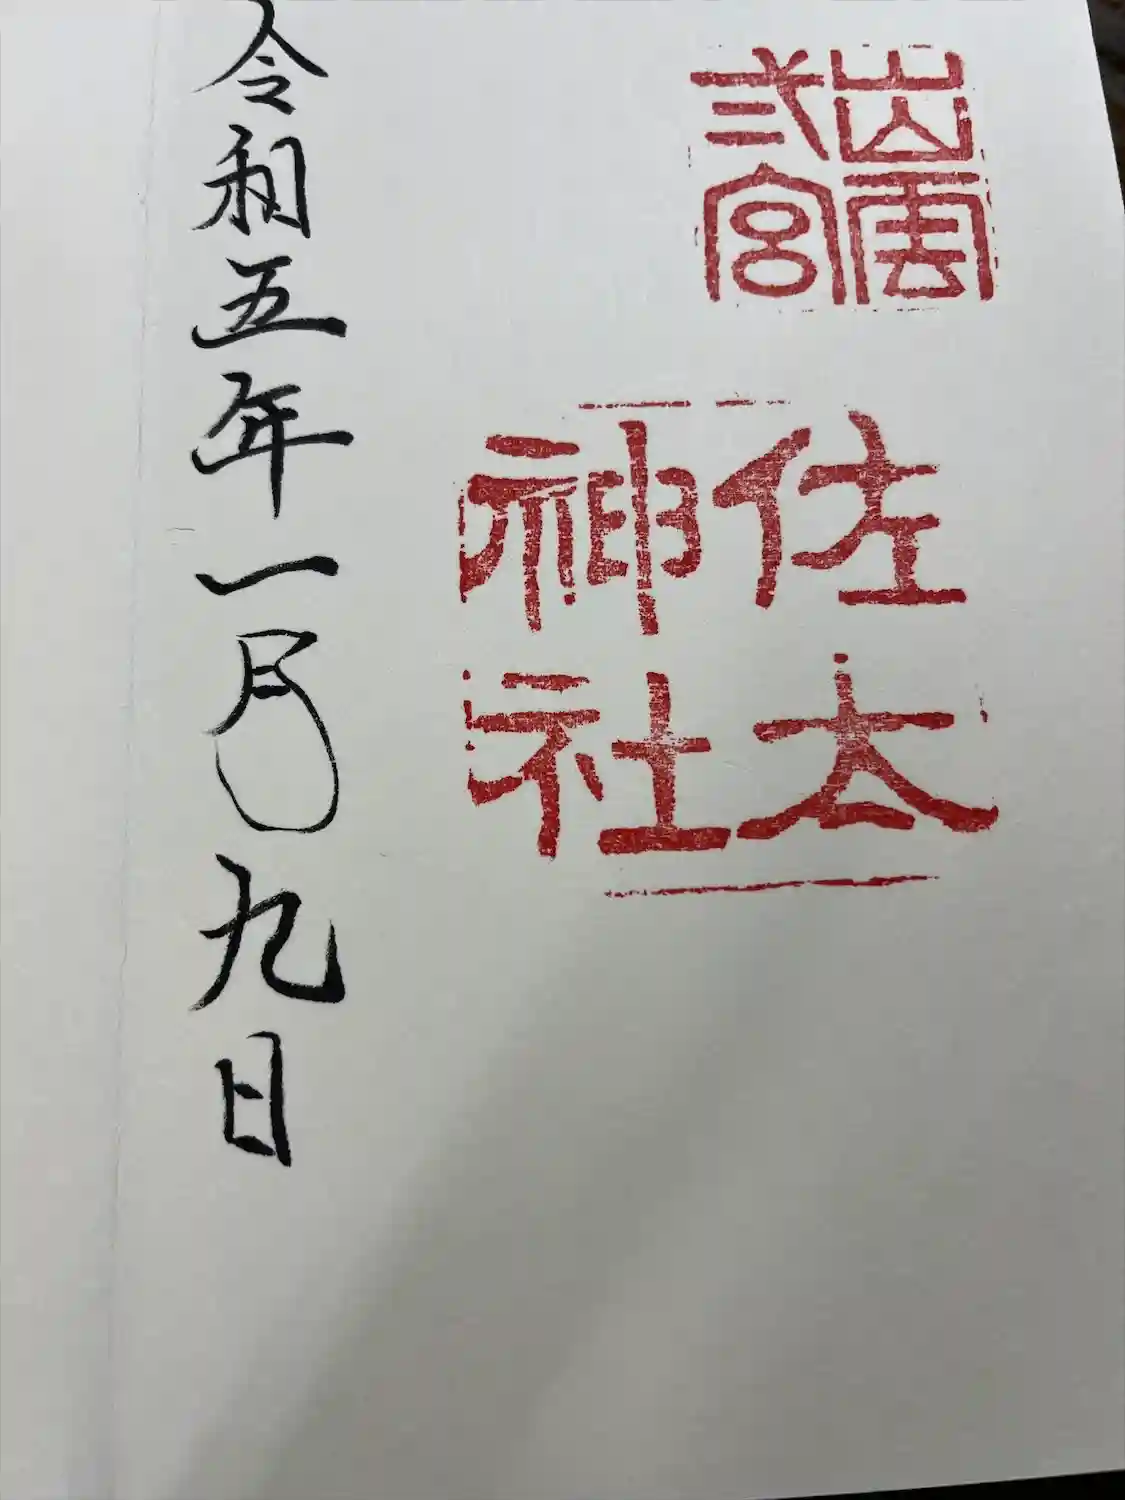 出雲
弍宮
佐太
神社
令和五年一月〇九日